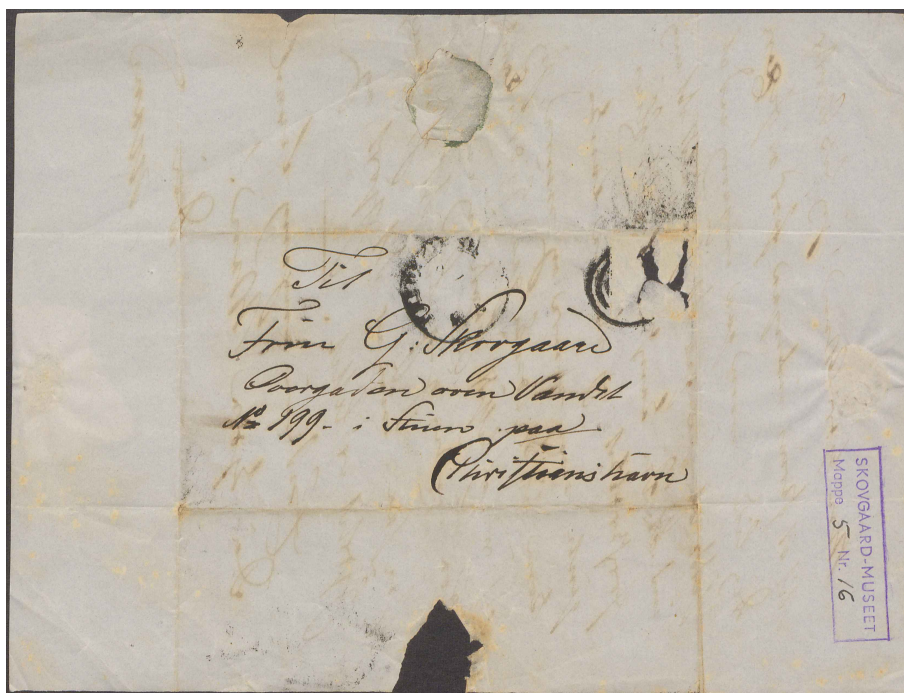 Til
Frøn G: Skovgaard
Overgaden oven Vandet
No 199- i Stuen paa
Christianshavn
SKOVGAARD-MUSEET
Mappe 5 Nr. 16